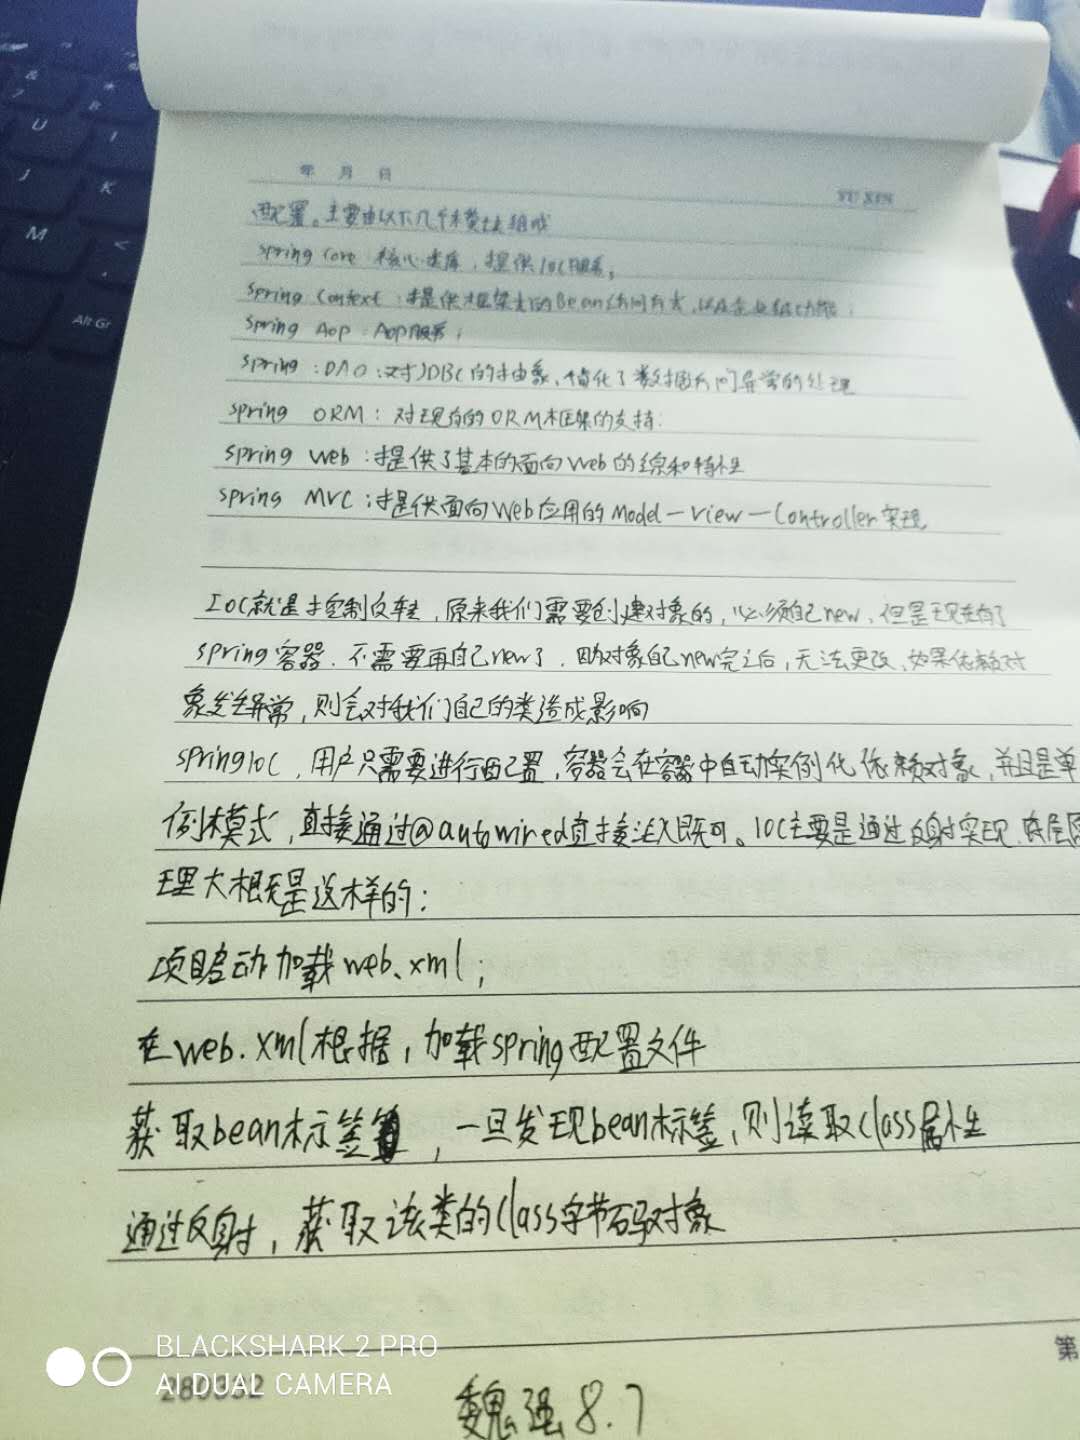 & * 7 8
U I
J K
M <
,
Alt Gr
年 月 日
YU XIN
配置。主要由以下几个模块组成
spring core 核心类库，提供IOC服务；
spring context：提供框架式的Bean访问方式，以及企业级功能；
spring Aop：Aop服务；
spring：DAO：对JDBC的抽象，简化了数据访问异常的处理
spring ORM：对现有的ORM框架的支持；
spring web：提供了基本的面向Web的综和特性
spring MVC：提供面向Web应用的Model—View—Controller实现。
IOC就是控制反转，原来我们需要创建对象的，必须自己new，但是现在有了
spring容器，不需要再自己new了，因为对象自己new完之后，无法更改，如果依赖对
象发生异常，则会对我们自己的类造成影响
springioc，用户只需要进行配置，容器会在容器中自动实例化依赖对象，并且是单
例模式，直接通过@autowired直接注入既可。IOC主要是通过反射实现，底层原
理大概是这样的：
项目启动加载web.xml；
在web.xml根据，加载spring配置文件
获取bean标签，一旦发现bean标签，则读取class属性
通过反射，获取该类的Class字节码对象
第
BLACKSHARK 2 PRO
AI DUAL CAMERA
魏强 8.7